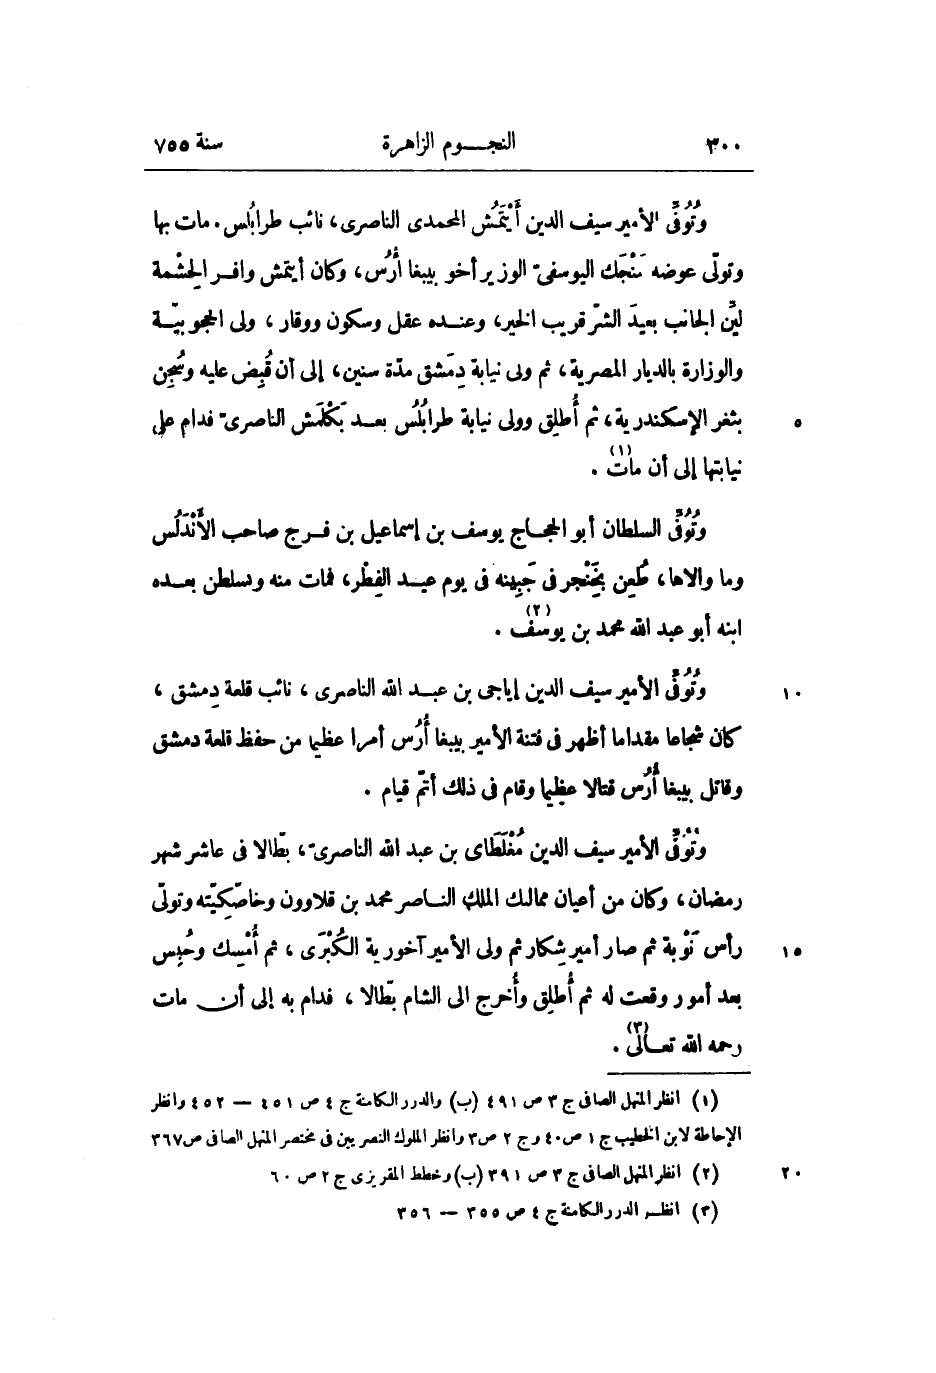 ٣٠٠ النجـــوم الزاهرة سنة ٧٥٥
وتُوُفِّى الأمير سيف الدين أَيْتَمُش المحمدى الناصرى، نائب طرابُلس. مات بها
وتولّى عوضه مَنْجَك اليوسفىّ الوزير أخو بيبغا أُرُس، وكان أيتمش وافر الحِشْمة
ليّن الجانب بعيدَ الشرّ قريب الخير، وعنده عقل وسكون ووقار، ولى الحجوبيّة
والوزارة بالديار المصرية، ثم ولى نيابة دِمَشق مدّة سنين، إلى أن قُبِض عليه وسُجِن
٥ بثغر الإسكندرية، ثم أُطلِق وولى نيابة طرابُلُس بعد بَكْلَمُش الناصرىّ فدام على
نيابتها إلى أن مات(١).
وتُوُفِّى السلطان أبو الحجاج يوسف بن إسماعيل بن فرج صاحب الأَنْدَلُس
وما والاها، طُعِن بخِنْجر فى جَبِينه فى يوم عيد الفِطْر، فمات منه وتسلطن بعده
ابنه أبو عبد الله محمد بن يوسف(٢).
١٠ وتُوُفِّى الأمير سيف الدين إياجى بن عبد الله الناصرى، نائب قلعة دِمشق،
كان شجاعا مقداما أظهر فى فتنة الأمير بيبغا أُرُس أمرا عظيما من حفظ قلعة دمشق
وقاتل بيبغا أُرُس قتالا عظيما وقام فى ذلك أتمّ قيام.
وتُوُفِّى الأمير سيف الدين مُغْلَطَاى بن عبد الله الناصرىّ، بطّالا فى عاشر شهر
رمضان، وكان من أعيان ممالك الملك الناصر محمد بن قلاوون وخاصّكيّته وتولّى
١٥ رأس نَوْبة ثم صار أمير شِكار ثم ولى الأمير آخورية الكُبْرَى، ثم أُمْسِك وحُبِس
بعد أمور وقعت له ثم أُطلِق وأُخرِج الى الشام بطّالا، فدام به إلى أن مات
رحمه الله تعالى(٣).
(١) انظر المنهل الصافى ج ٣ ص ٤٩١ (ب) والدرر الكامنة ج ٤ ص ٤٥١ — ٤٥٢ وانظر
الإحاطة لابن الخطيب ج ١ ص ٤٠ و ج ٢ ص ٣ وانظر الملوك النصريين فى مختصر المنهل الصافى ص ٣٦٧
٢٠ (٢) انظر المنهل الصافى ج ٣ ص ٣٩١ (ب) وخطط المقريزى ج ٢ ص ٦٠
(٣) انظر الدرر الكامنة ج ٤ ص ٣٥٥ — ٣٥٦